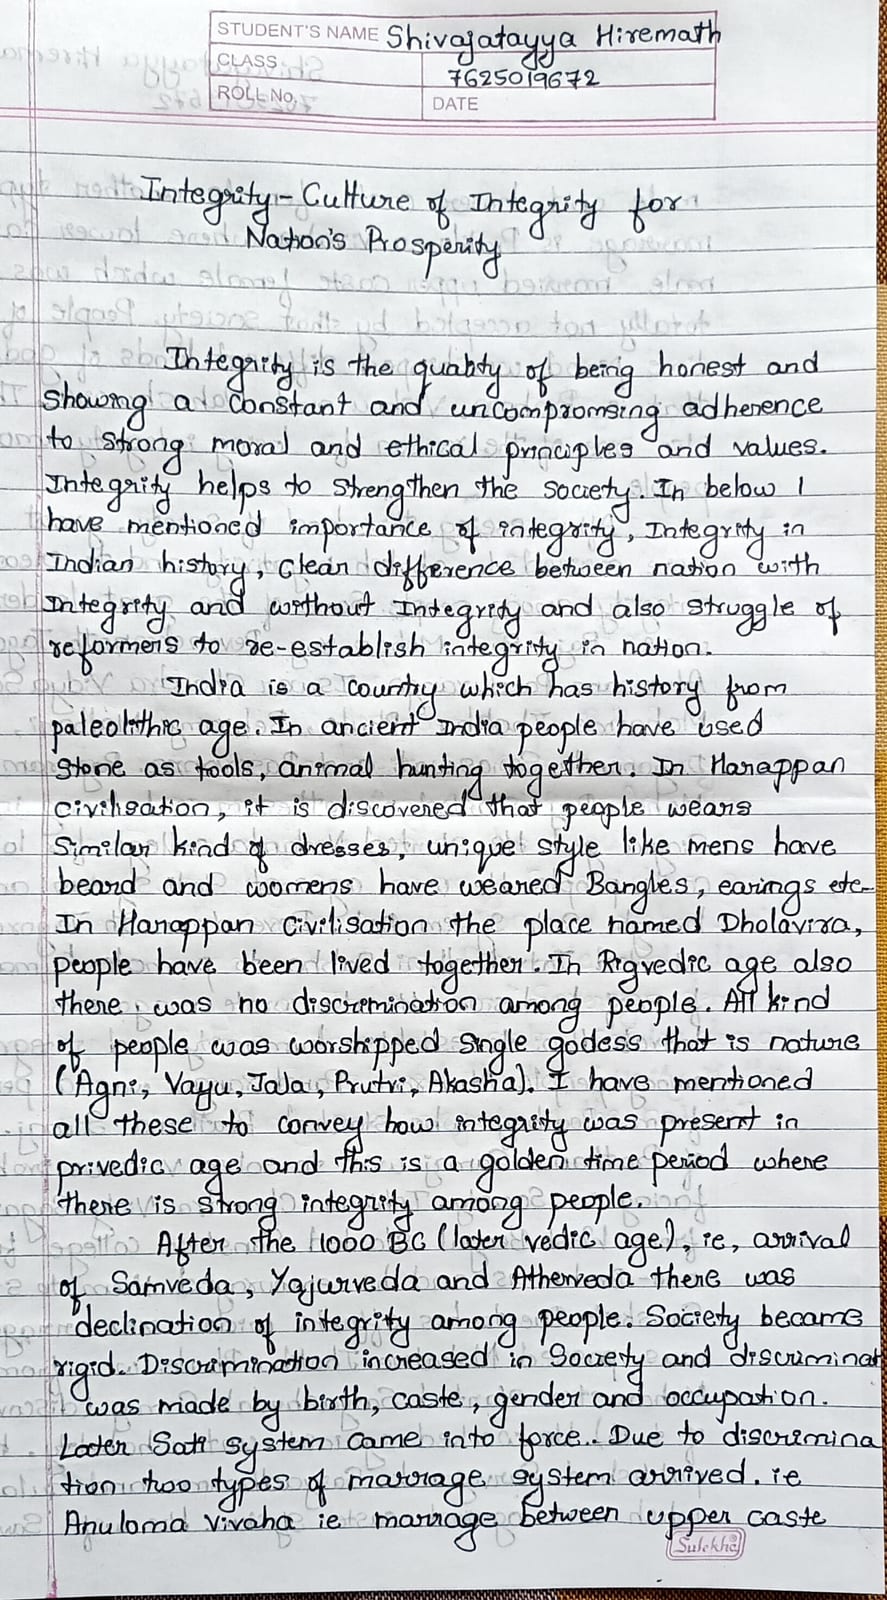 STUDENT'S NAME Shivajatayya Hiremath
CLASS 7625019672
ROLL No. DATE
Integrity - Culture of Integrity for
Nation's Prosperity
Integrity is the quality of being honest and
showing a constant and uncompromsing adherence
to strong moral and ethical principles and values.
Integrity helps to strengthen the society. In below I
have mentioned importance of integrity, Integrity in
Indian history, clear difference between nation with
Integrity and without Integrity and also struggle of
reformers to re-establish integrity in nation.
India is a country which has history from
paleolithic age. In ancient India people have used
stone as tools, animal hunting together. In Harappan
civilisation, it is discovered that people wears
similar kind of dresses, unique style like mens have
beard and womens have weared Bangles, earings etc-
In Harappan Civilisation the place named Dholavira,
people have been lived together. In Rigvedic age also
there was no discremination among people. All kind
of people was worshipped single godess that is nature
(Agni, Vayu, Jala, Prutvi, Akasha). I have mentioned
all these to convey how integrity was present in
privedic age and this is a golden time period where
there is strong integrity among people.
After the 1000 BC (later vedic age), ie, arrival
of Samveda, Yajurveda and Atherveda there was
declination of integrity among people. Society became
rigid. Discrimination increased in Society and discriminat
was made by birth, caste, gender and occupation.
Later Sati system came into force.. Due to discremina
tion two types of marrage system arrived. ie
Anuloma Vivaha ie marrage between upper caste
Sulekha